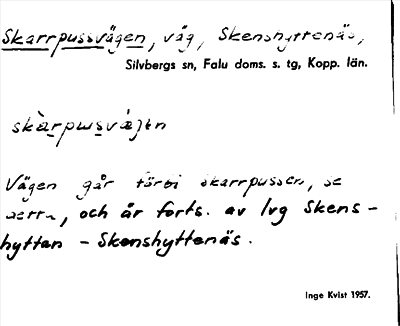 Skarrpussvägen, väg, Skenshyttenäs,
Silvbergs sn, Falu doms. s. tg, Kopp. län.
skàrpusvä̀jen
Vägen går förbi Skarrpussen, se
detta, och är forts. av lvg Skens-
hyttan - Skenshyttenäs.
Inge Kvist 1957.